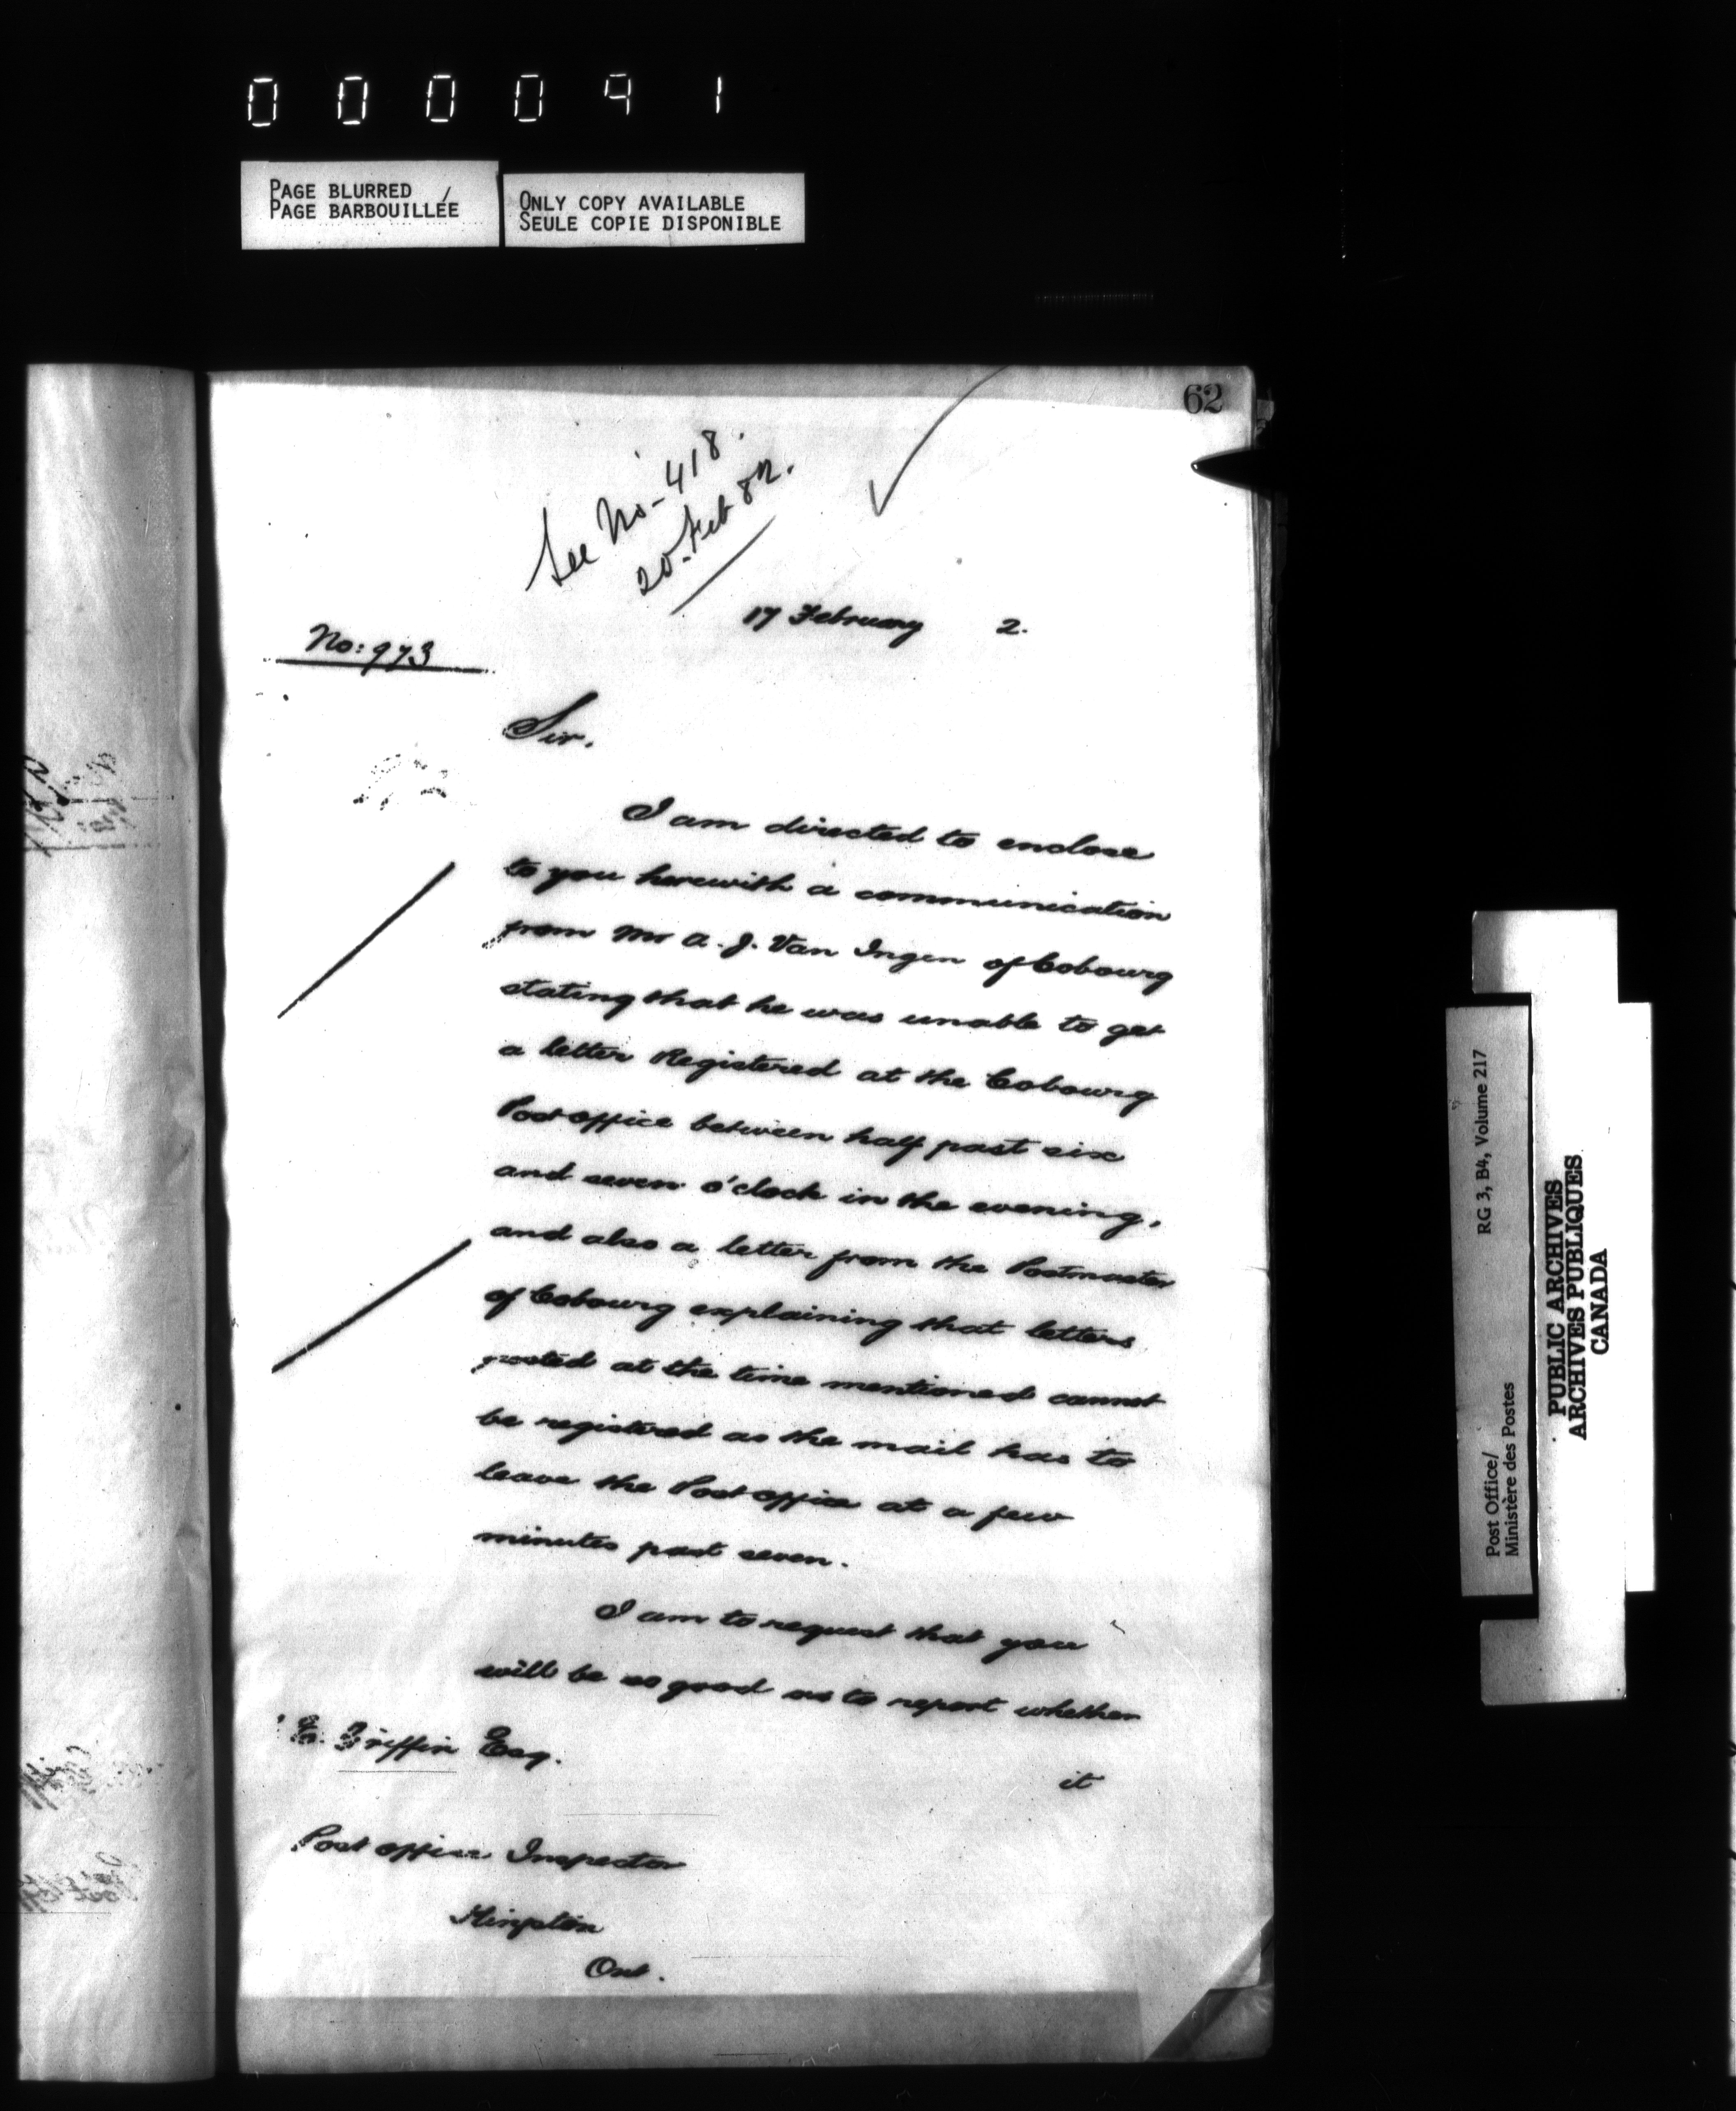 000091
PAGE BLURRED /
PAGE BARBOUILLÉE
ONLY COPY AVAILABLE
SEULE COPIE DISPONIBLE
62
See No- 418.
20-Feb 82.
17 February 2.
No: 973
Sir.
I am directed to enclose
to you herewith a communication
from Mr A. J. Van Ingen of Cobourg
stating that he was unable to get
a letter Registered at the Cobourg
Post office between half past six
and seven o'clock in the evening,
and also a letter from the Postmaster
of Cobourg explaining that letters
posted at the time mentioned cannot
be registered as the mail has to
leave the Post office at a few
minutes past seven.
I am to request that you
will be so good as to report whether
it
Griffin Esq.
Post office Inspector
Kingston
Ont.
Post Office/
Ministère des Postes
RG 3, B4, Volume 217
PUBLIC ARCHIVES
ARCHIVES PUBLIQUES
CANADA